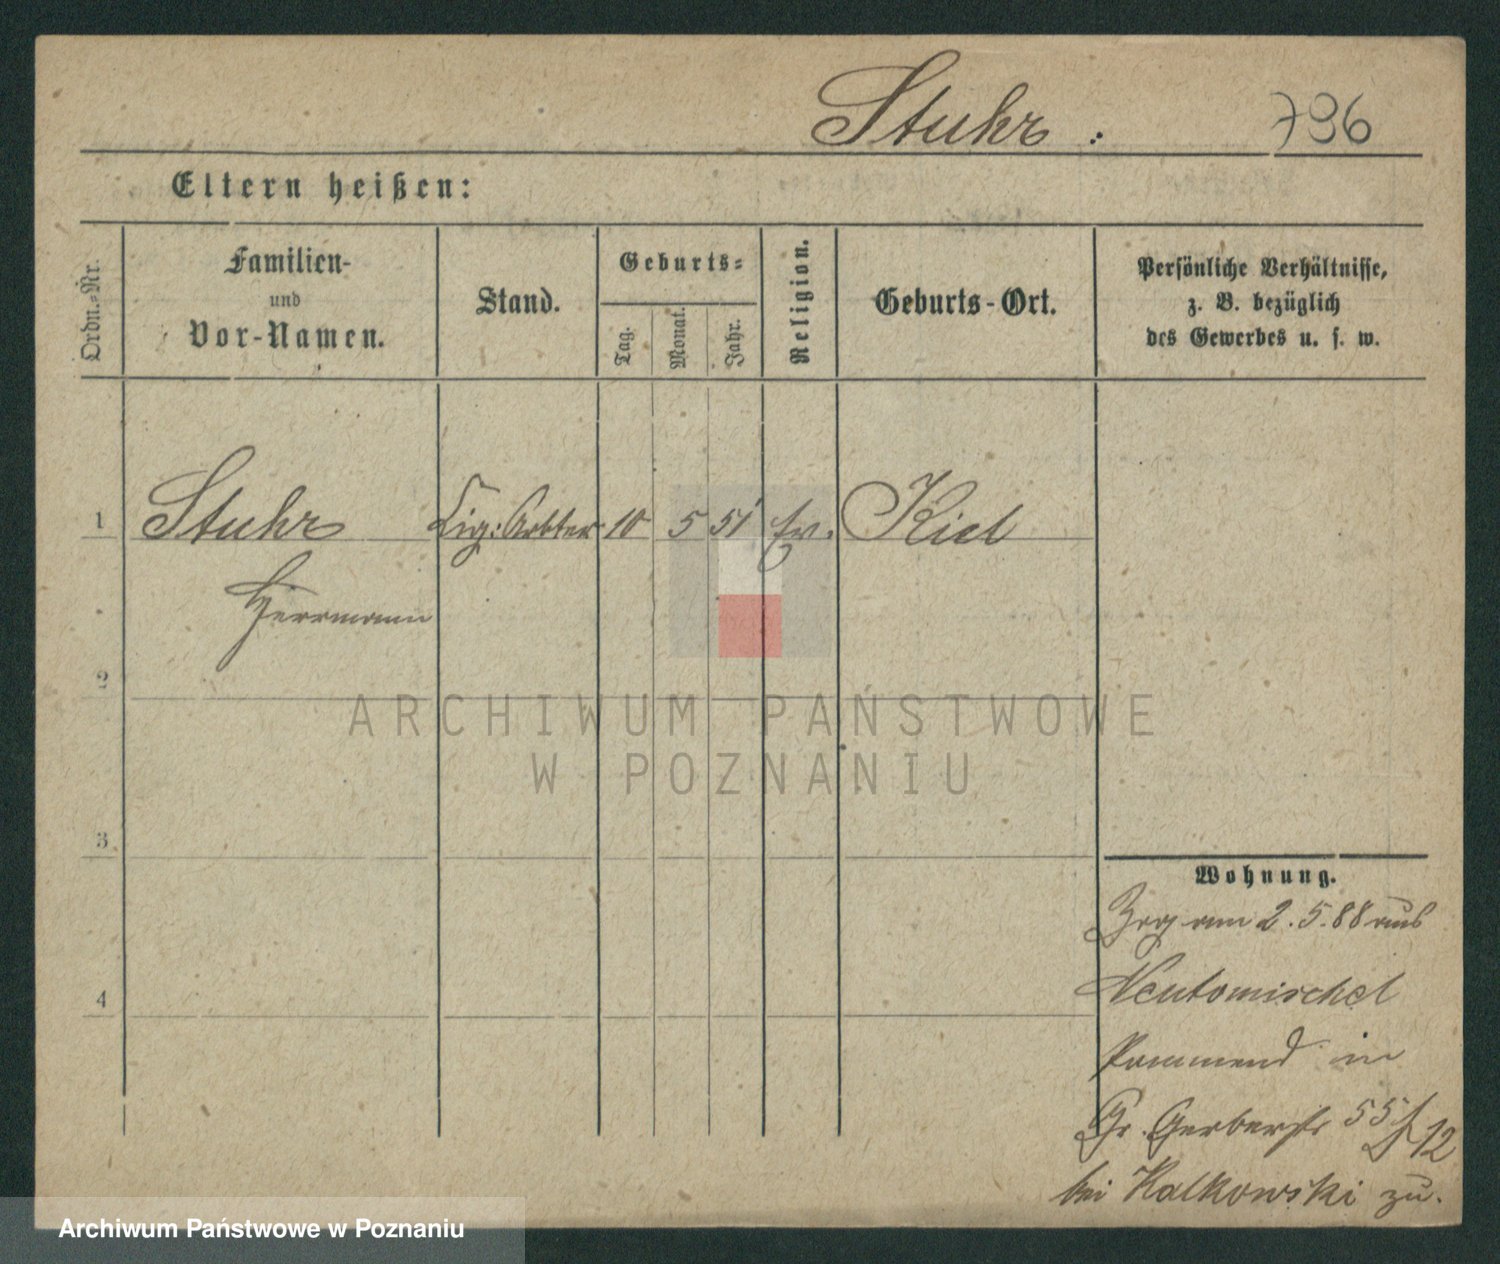 Stuhr : 796
Eltern heißen:
Ordn.=Nr.
Familien-
und
Vor-Namen.
Stand.
Geburts=
Tag.
Monat.
Jahr.
Religion.
Geburts-Ort.
Persönliche Verhältnisse,
z. B. bezüglich
des Gewerbes u. s. w.
1 Stuhr Cig: Arbter 10 5 51 Ev. Kiel
Herrmann
2
ARCHIWUM PAŃSTWOWE
W POZNANIU
3
4
Wohnung.
Zog am 2.5.88 aus
Neutomischel
kommend in
Gr. Gerberstr 55 12
bei Kalkowski zu.
Archiwum Państwowe w Poznaniu